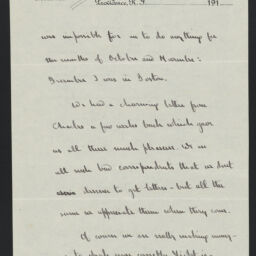 Providence, R.I. 191
was impossible for me to do anything for
the months of October and November:
December I was in Boston.
We had a charming letter from
Charles a few weeks back which gave
us all three much pleasure. We are
all such bad correspondents that we don't
deserve to get letters - but all the
same we appreciate them when they come.
Of course we are really making